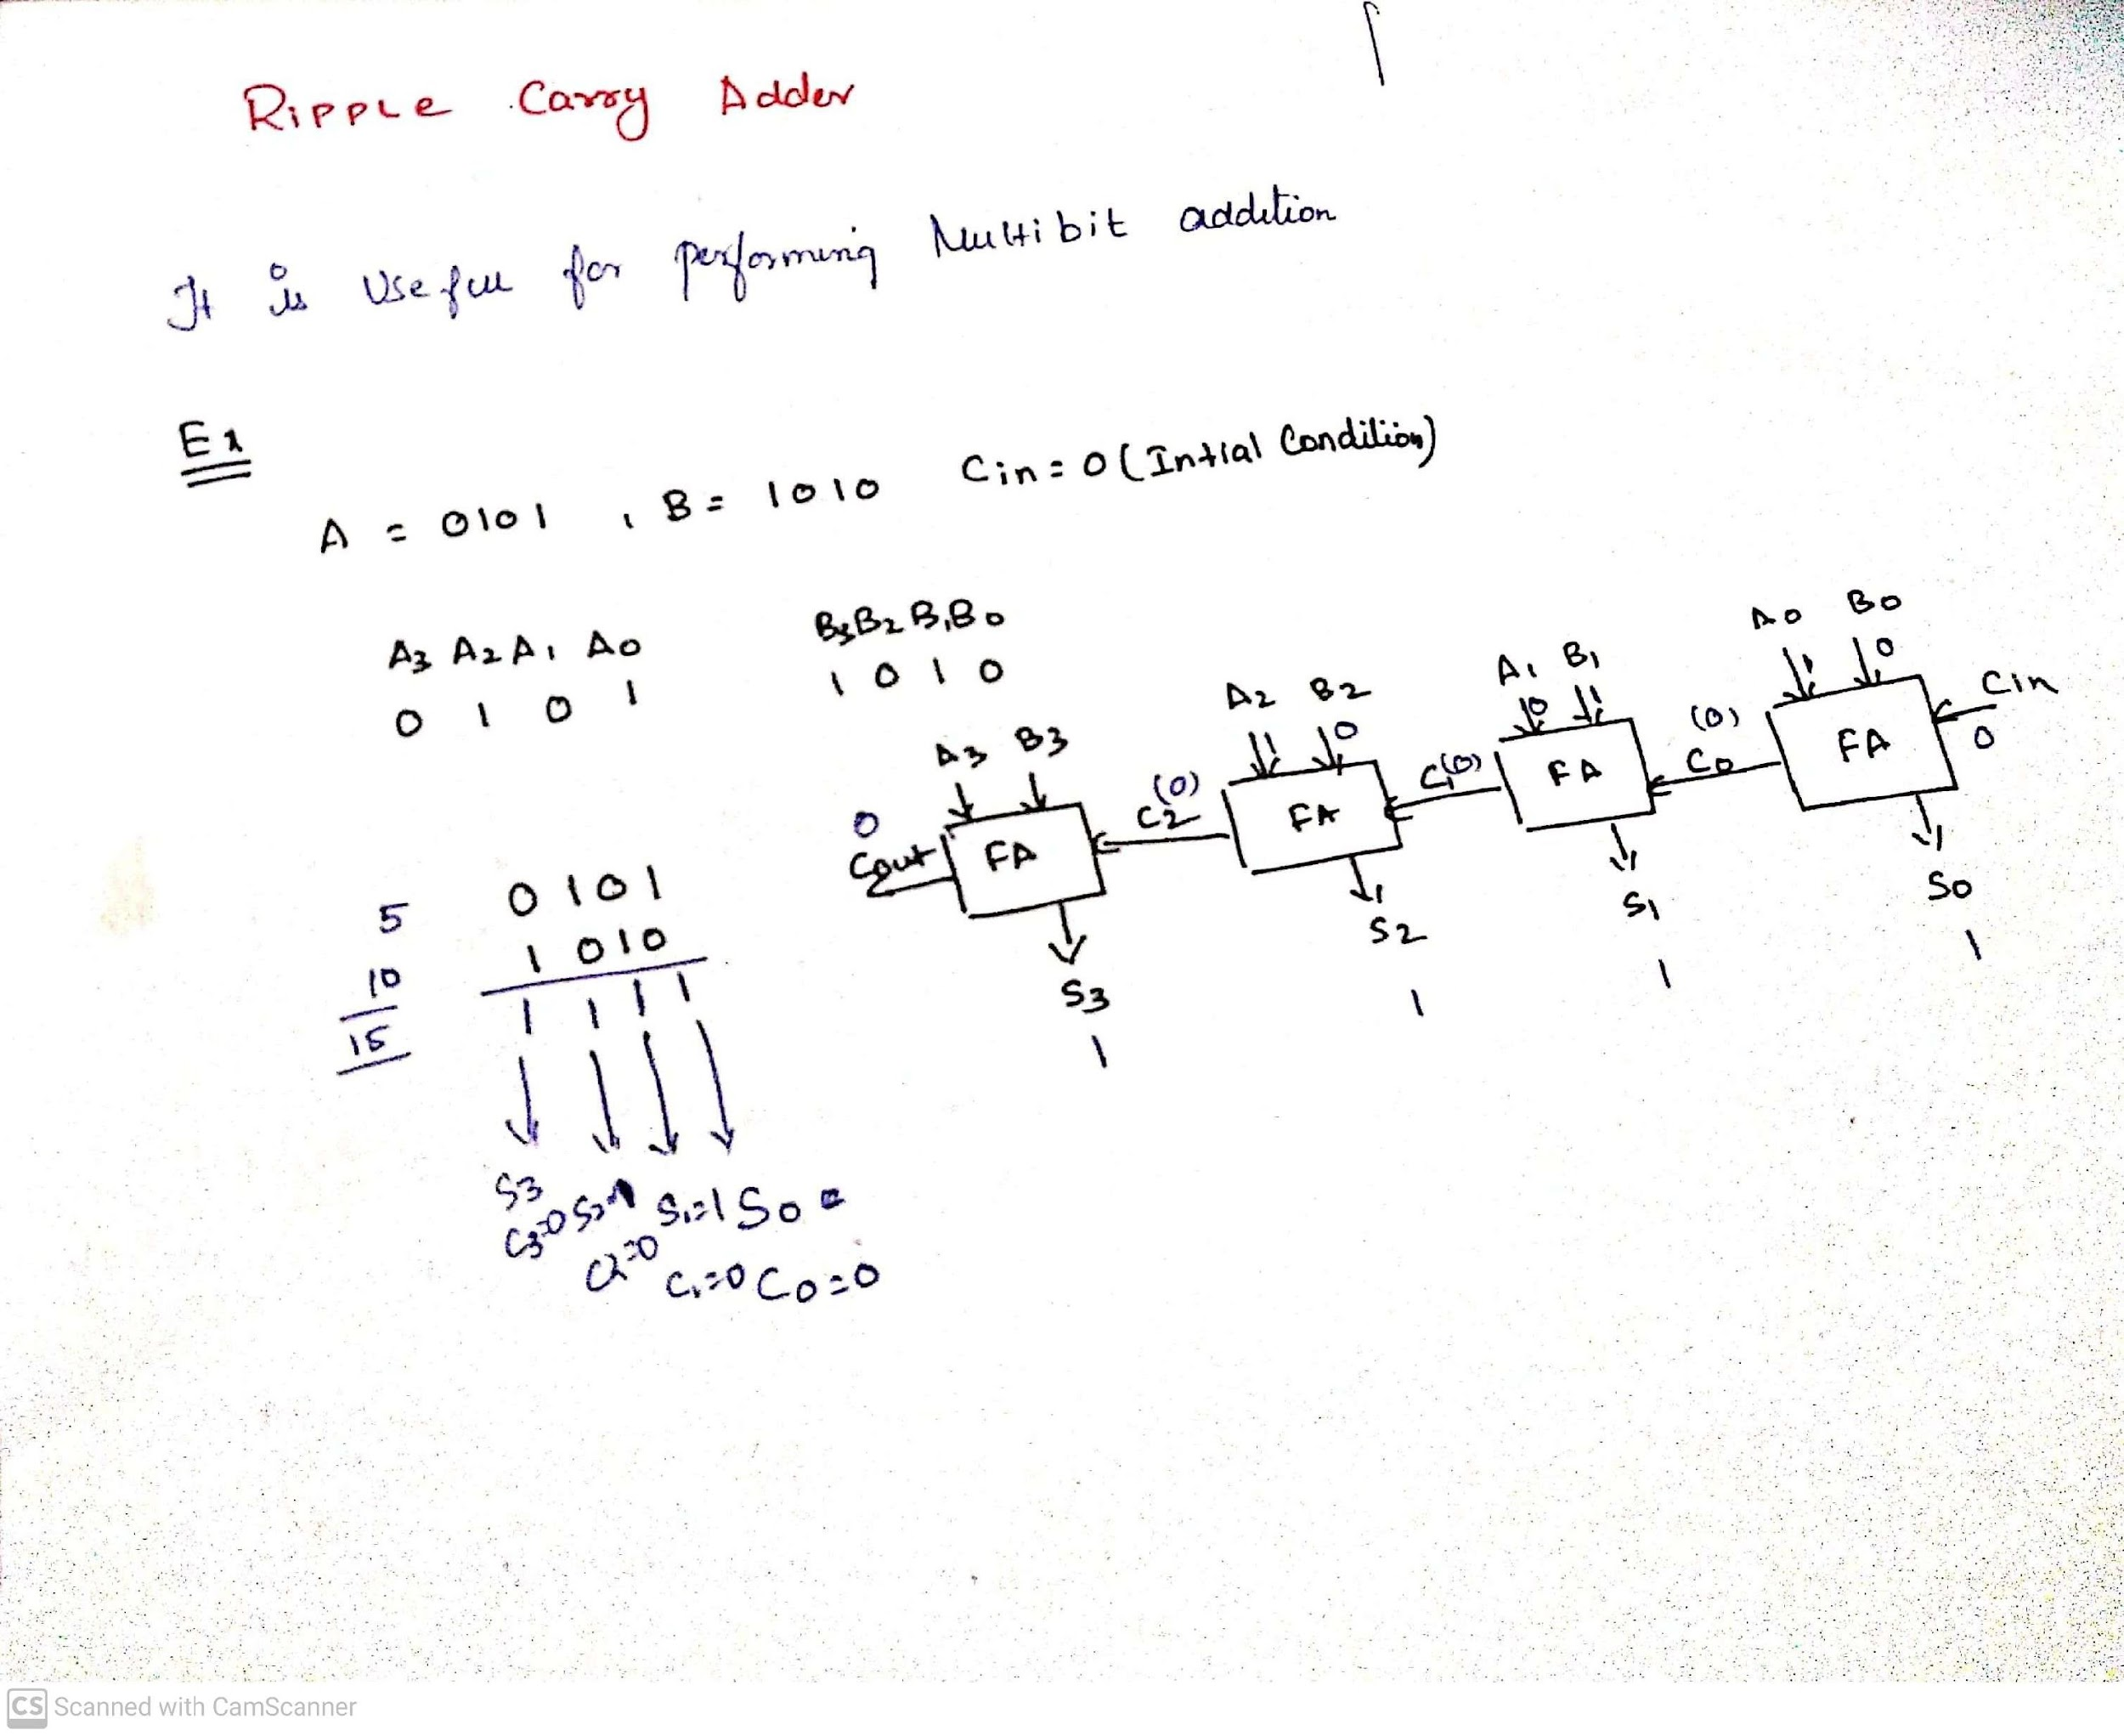 Ripple Carry Adder
It is Usefull for performing Multibit addition
Ex
A = 0101 , B = 1010 Cin = 0 (Intial Condition)
A3 A2 A1 A0
0 1 0 1
B3 B2 B1 B0
1 0 1 0
A3 B3
A2 B2
1 0
A1 B1
0 1
A0 B0
1 0
0
Cout FA
(0)
C2
FA
C1(0)
FA
(0)
C0
FA
Cin
0
S3
1
S2
1
S1
1
S0
1
5
10
15
0101
1010
1 1 1 1
S3
C3=0 S2=1 S1=1 S0 =
C2=0
C1=0 C0=0
CS Scanned with CamScanner